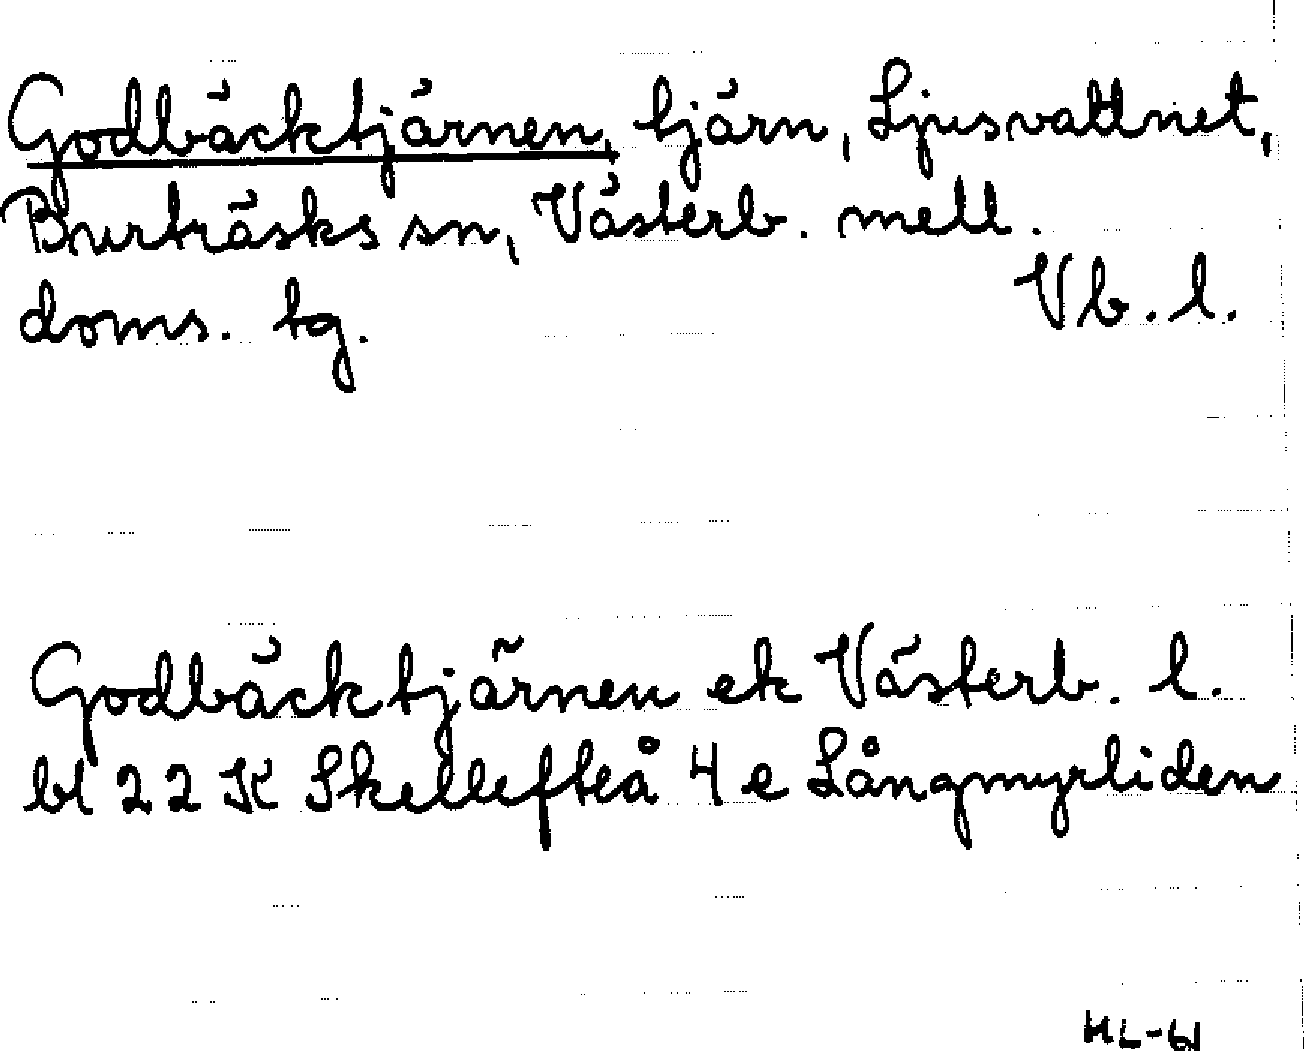 Godbäcktjärnen, tjärn, Ljusvattnet,
Burträsks sn, Västerb. mell.
doms. tg. Vb. l.
Godbäcktjärnen ek Västerb. l.
bl 22 K Skellefteå 4 e Långmyrliden
HL-61